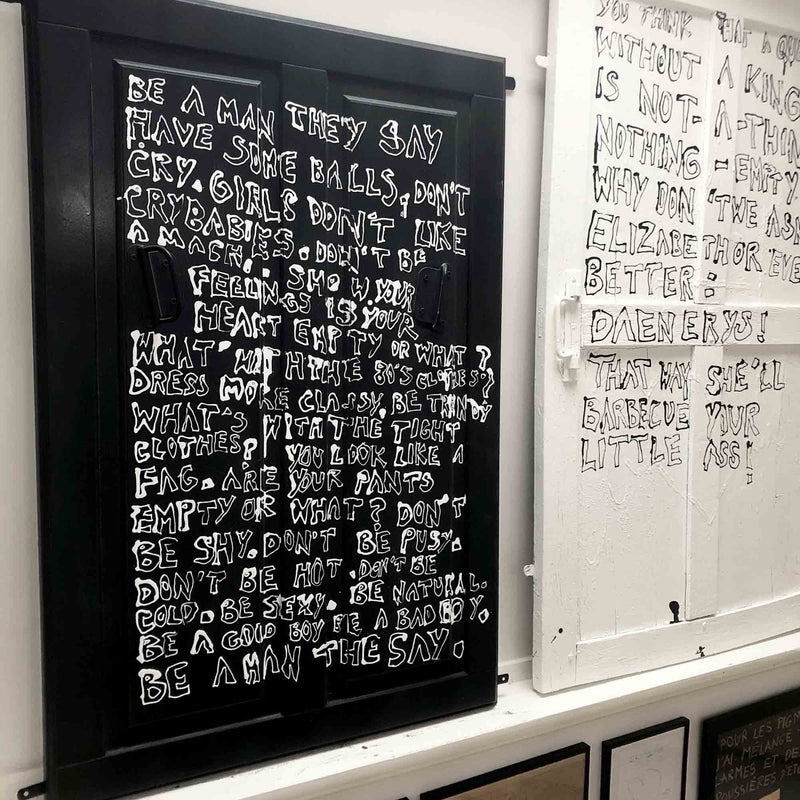 BE A MAN THEY SAY
HAVE SOME BALLS, DON'T
CRY. GIRLS DON'T LIKE
CRYBABIES. DON'T BE
A MACH.
FEELINGS SHOW YOUR
HEART IS YOUR
EMPTY OR WHAT?
WHAT'S WITH THE 80'S CLOTHES?
DRESS MORE CLASSY, BE TRENDY
WHAT'S WITH THE TIGHT
CLOTHES? YOU LOOK LIKE A
FAG. ARE YOUR PANTS
EMPTY OR WHAT? DON'T
BE SHY. DON'T BE PUSY.
DON'T BE HOT. DON'T BE
COLD. BE SEXY. BE NATURAL.
BE A GOOD BOY BE A BAD BOY.
BE A MAN THE SAY.
YOU THINK THAT A
WITHOUT A KING
IS NOT- A -THIN
NOTHING - EMPTY.
WHY DON'TWE ASK
ELIZABETH OR EVE
BETTER:
DAENERYS!
THAT WAY SHE'LL
BARBECUE YOUR
LITTLE ASS!
POUR LES
J'AI MÉLANGÉ
ARMES ET DE
POUSSIÈRES D'ÉT